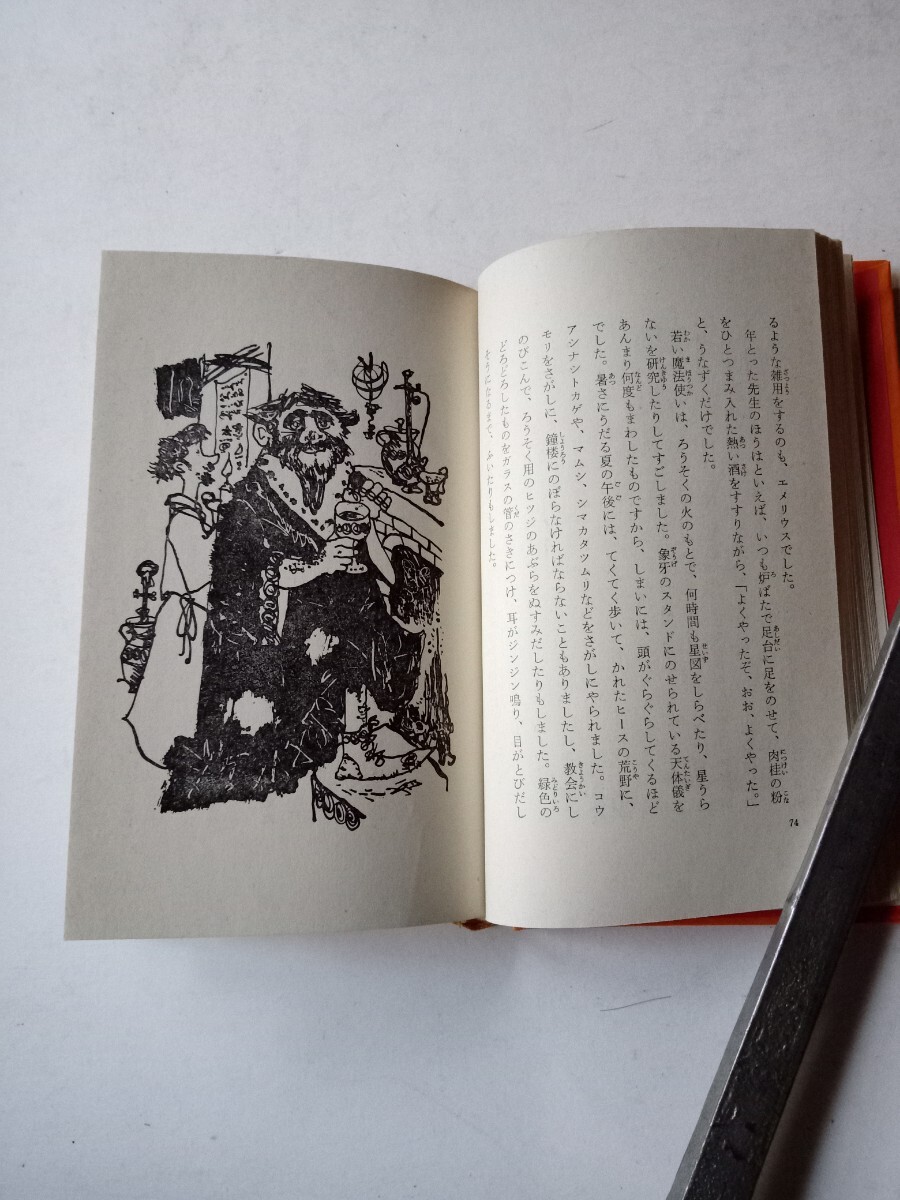 るような雑用をするのも、エメリウスでした。
年とった先生のほうはといえば、いつも炉ばたで足台に足をのせて、肉桂の粉
をひとつまみ入れた熱い酒をすすりながら、「よくやったぞ、おお、よくやった。」
と、うなずくだけでした。
若い魔法使いは、ろうそくの火のもとで、何時間も星図をしらべたり、星うら
ないを研究したりしてすごしました。象牙のスタンドにのせられている天体儀を
あんまり何度もまわしたものですから、しまいには、頭がぐらぐらしてくるほど
でした。暑さにうだる夏の午後には、てくてく歩いて、かれたヒースの荒野に、
アシナシトカゲや、マムシ、シマカタツムリなどをさがしにやられました。コウ
モリをさがしに、鐘楼にのぼらなければならないこともありましたし、教会にし
のびこんで、ろうそく用のヒツジのあぶらをぬすみだしたりもしました。緑色の
どろどろしたものをガラスの管のさきにつけ、耳がジンジン鳴り、目がとびだし
そうになるまで、ふいたりもしました。
74